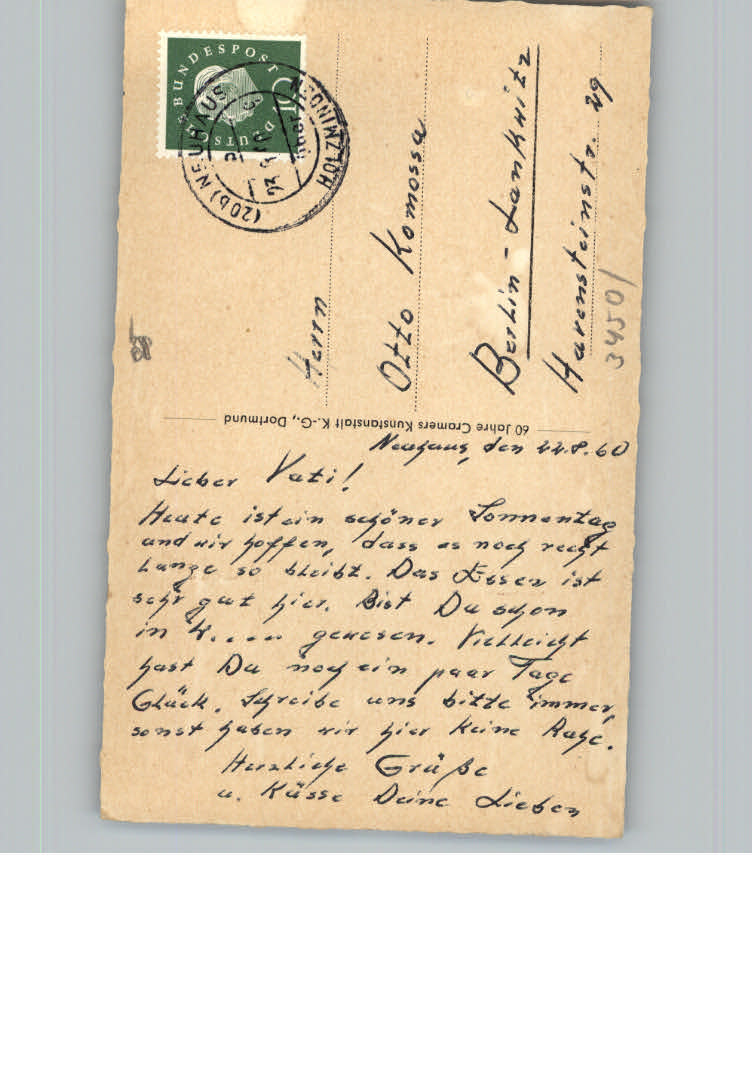 DEUTSCHE BUNDESPOST
10
(20b) NEUHAUS
HOLZMINDEN
Herrn
Otto Komossa
Berlin-Lankwitz
Havensteinstr. 29
34501
60 Jahre Cramers Kunstanstalt K.-G., Dortmund
Neuhaus, den 22.8.60
Lieber Vati!
Heute ist ein schöner Sonnentag
und wir hoffen, dass es noch recht
lange so bleibt. Das Essen ist
sehr gut hier. Bist Du schon
in W.... gewesen. Vielleicht
hast Du noch ein paar Tage
Glück. Schreibe uns bitte immer,
sonst haben wir hier keine Ruhe.
Herzliche Grüße
u. Küsse Deine Lieben